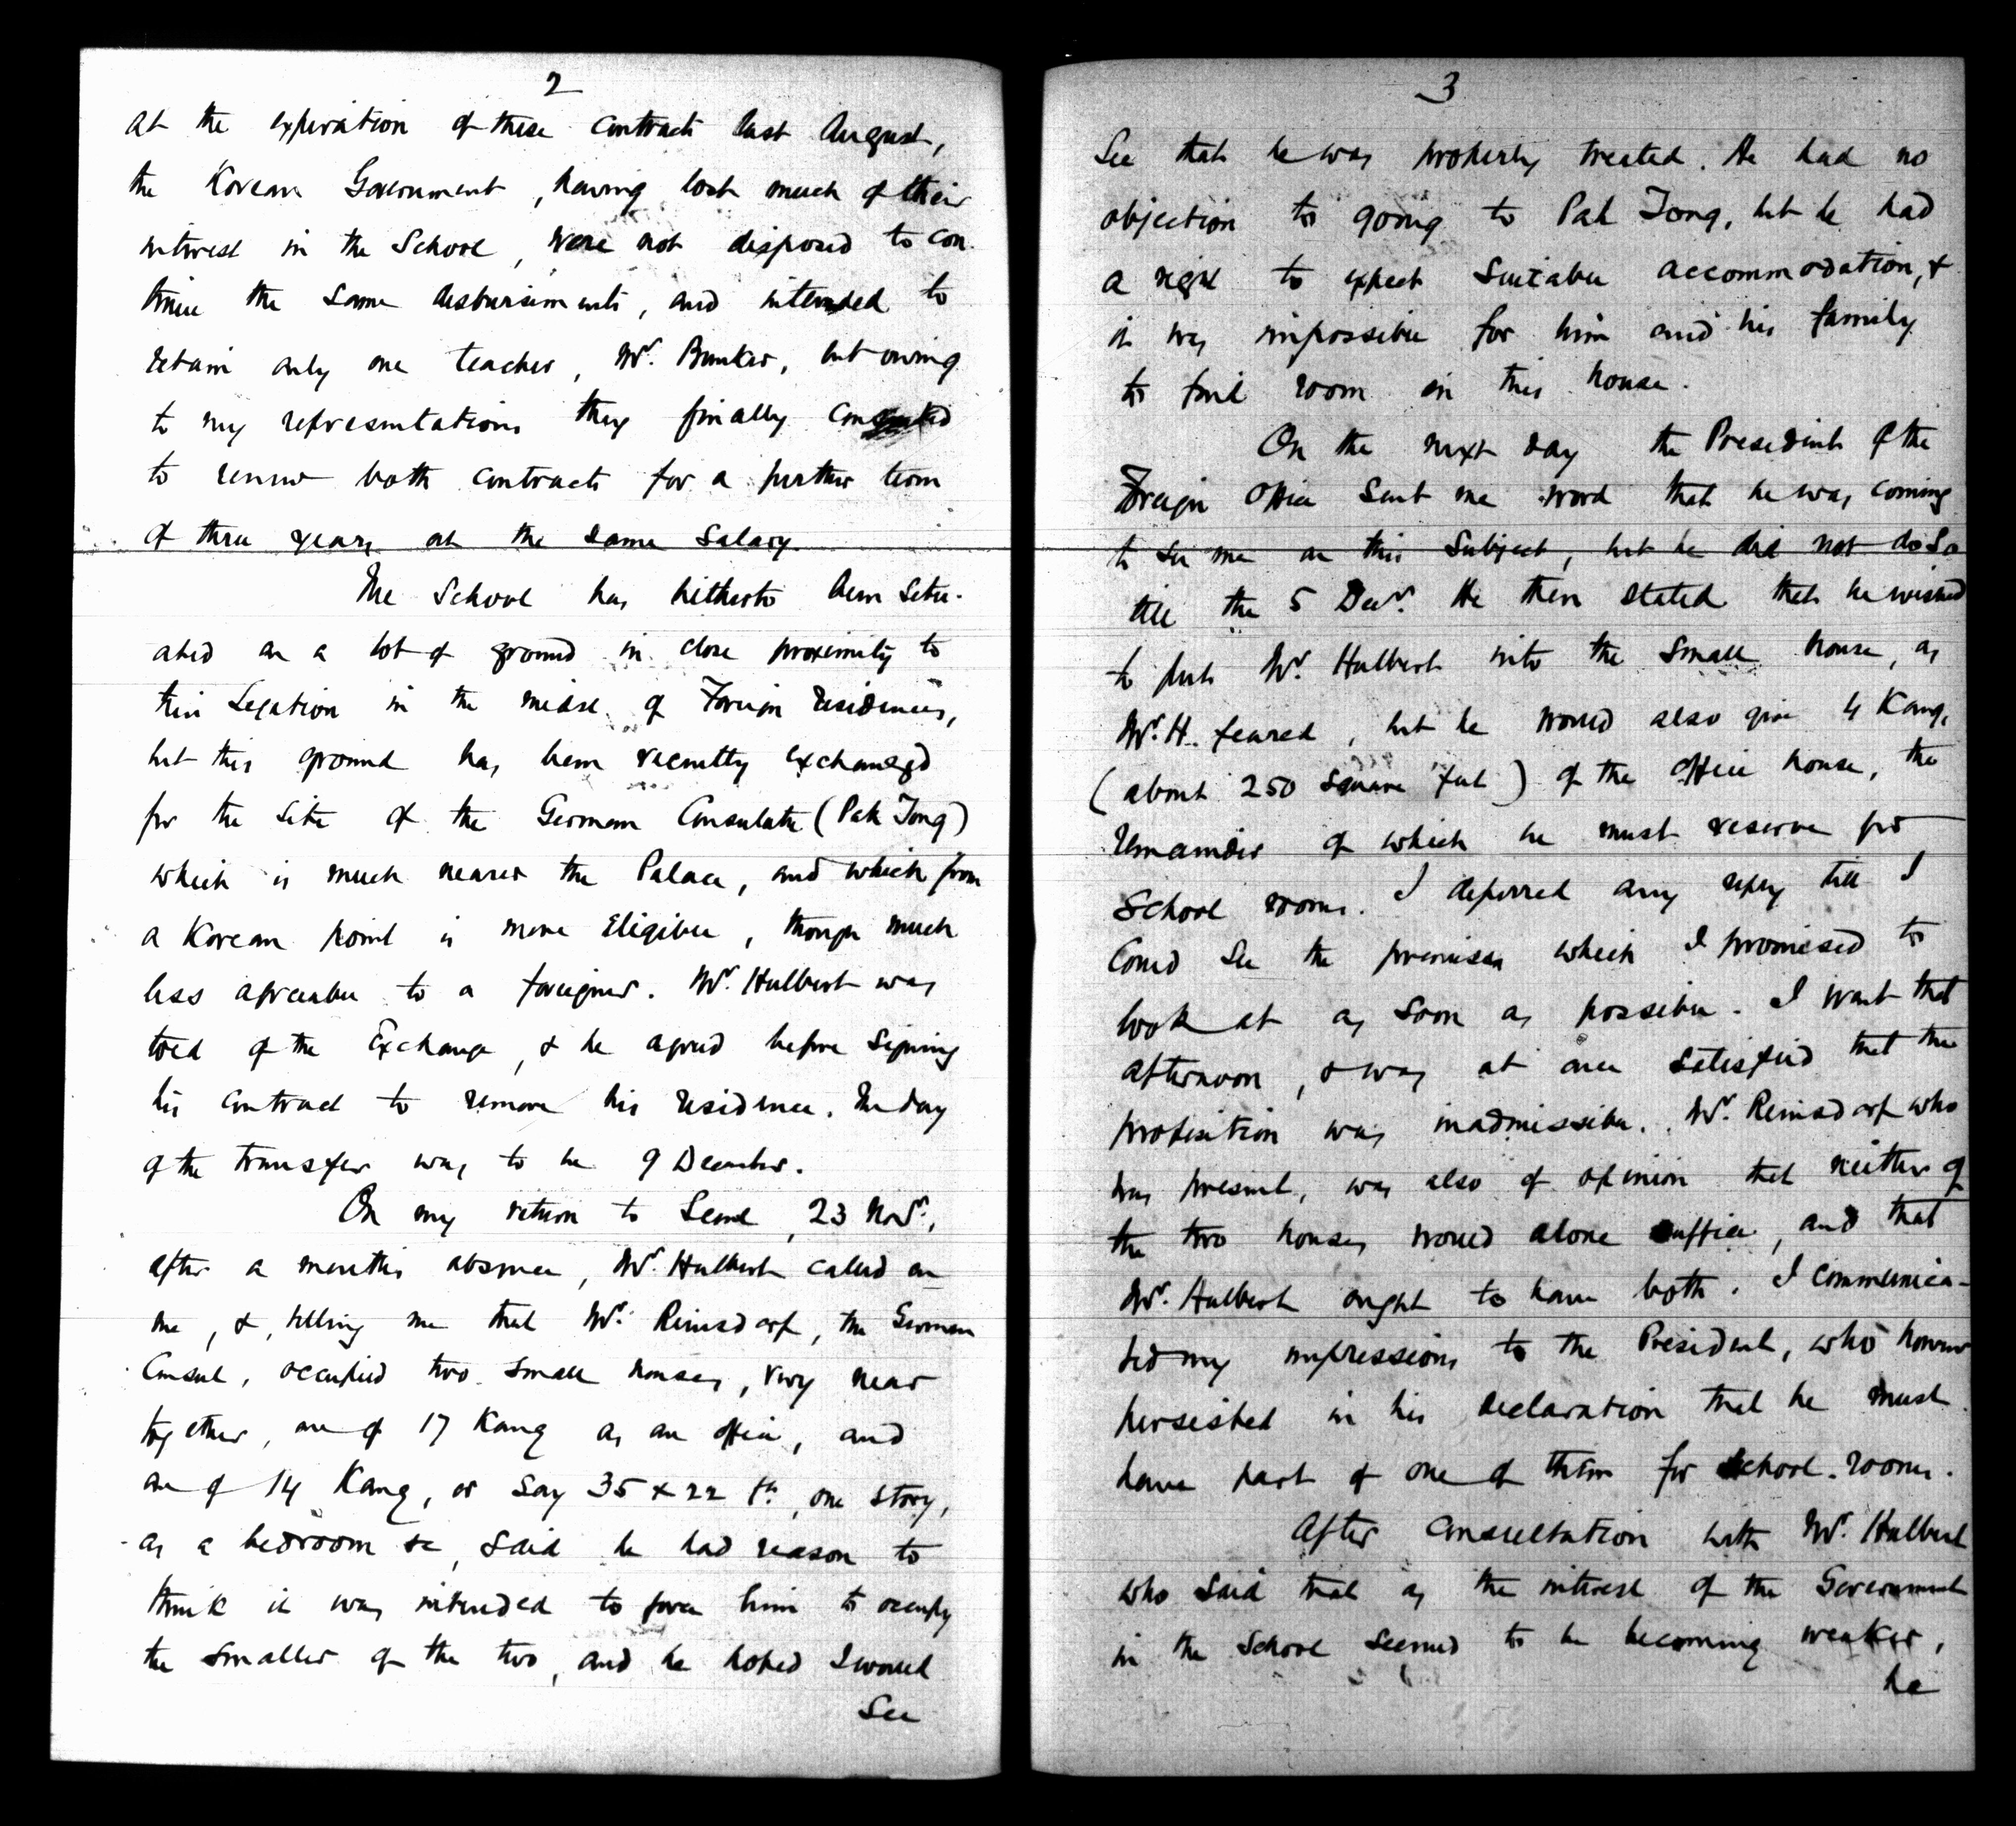 2
at the expiration of these contracts last August,
the Korean Government, having lost much of their
interest in the School, were not disposed to con-
tinue the same disbursements, and intended to
retain only one teacher, Mr. Bunker, but owing
to my representations they finally consented
to renew both contracts for a further term
of three years at the same salary.
The School has hitherto been situ-
ated on a lot of ground in close proximity to
this Legation in the midst of Foreign residences,
but this ground has been recently exchanged
for the site of the German Consulate (Pak Tong)
which is much nearer the Palace, and which from
a Korean point is more eligible, though much
less agreeable to a foreigner. Mr. Hulbert was
told of the Exchange, & he agreed before signing
his contract to remove his residence. The day
of the transfer was to be 9 December.
On my return to Seoul, 23 Novr.,
after a month's absence, Mr. Hulbert called on
me, &, telling me that Mr. Reinsdorf, the German
Consul, occupied two small houses, very near
together, one of 17 Kang as an office, and
one of 14 Kang, or say 35 x 22 ft., one story,
as a bedroom &c, said he had reason to
think it was intended to force him to occupy
the smaller of the two, and he hoped I would
See
3
See that he was properly treated. He had no
objection to going to Pak Tong, but he had
a right to expect suitable accommodation, &
it was impossible for him and his family
to find room in this house.
On the next day the President of the
Foreign Office sent me word that he was coming
to see me on this subject, but he did not do so
till the 5 Decr. He then stated that he wished
to put Mr. Hulbert into the small house, as
Mr. H. feared, but he would also give 4 Kang,
(about 250 square feet) of the office house, the
remainder of which he must reserve for
School rooms. I deferred any reply till I
could see the premises which I promised to
look at as soon as possible. I went that
afternoon, & was at once satisfied that the
proposition was inadmissible. Mr. Reinsdorf who
was present, was also of opinion that neither of
the two houses would alone suffice, and that
Mr. Hulbert ought to have both. I communica-
ted my impressions to the President, who however
persisted in his declaration that he must
have part of one of them for School-rooms.
After consultation with Mr. Hulbert
who said that as the interest of the Government
in the School seemed to be becoming weaker,
he